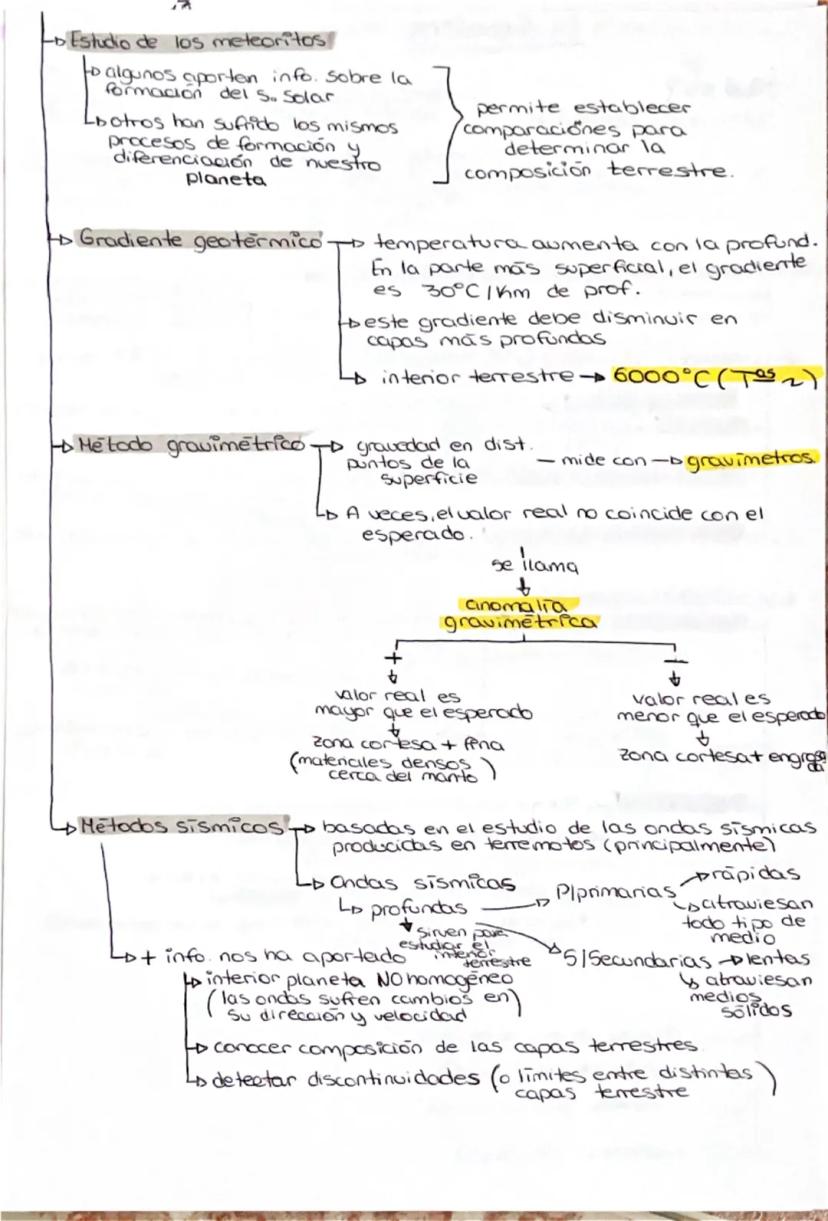 Estudio de los meteoritos
algunos aporten info. sobre la
formación del S. Solar
otros han sufrido los mismos
procesos de formación y
diferenciación de nuestro
planeta
permite establecer
comparaciones para
determinar la
composición terrestre.
Gradiente geotérmico → temperatura aumenta con la profund.
En la parte más superficial, el gradiente
es 30°C/Km de prof.
este gradiente debe disminuir en
capas más profundas
interior terrestre → 6000°C (Tas ~)
Método gravimétrico → gravedad en dist.
puntos de la
superficie
— mide con → gravímetros
A veces, el valor real no coincide con el
esperado.
se llama
anomalía
gravimétrica
+
valor real es
mayor que el esperado
zona cortesa + fina
(materiales densos
cerca del manto)
—
valor real es
menor que el esperado
zona cortesa + engrosada
Métodos sísmicos → basadas en el estudio de las ondas sísmicas
producidas en terremotos (principalmente)
Ondas sísmicas
profundas
sirven para
estudiar el
interior
terrestre
P/primarias
rápidas
atraviesan
todo tipo de
medio
S/Secundarias → lentas
atraviesan
medios
sólidos
+ info. nos ha aportado
interior planeta NO homogéneo
(las ondas sufren cambios en
su dirección y velocidad)
conocer composición de las capas terrestres
detectar discontinuidades (o límites entre distintas
capas terrestre)